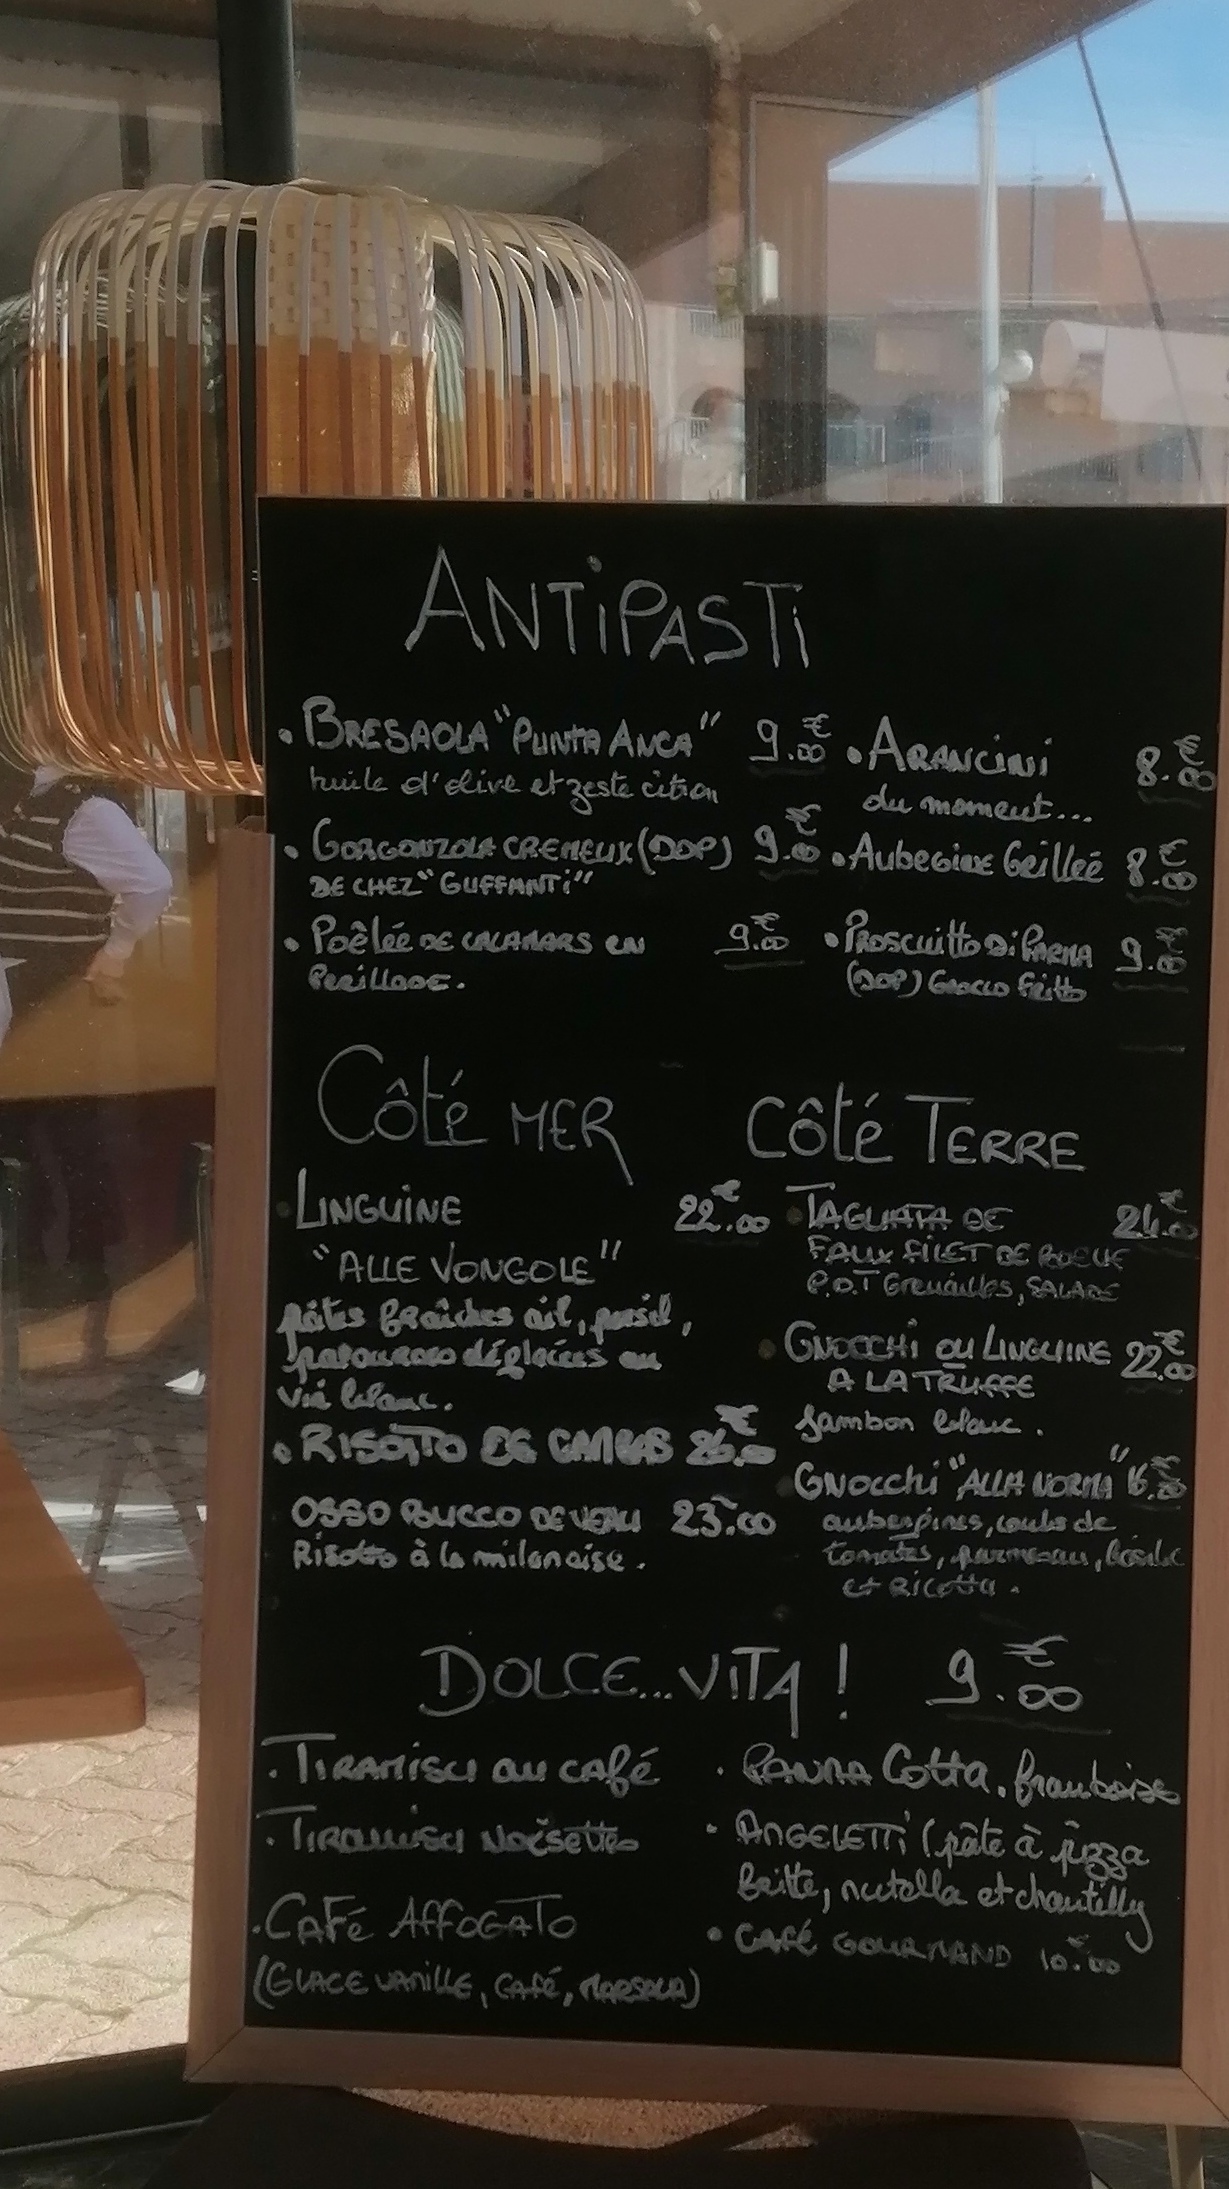 ANTiPASTi
• BRESAOLA "PUNTA ANCA" 9.00€
huile d'olive et zeste citron
• GORGONZOLA CREMEUX (DOP) 9.00€
DE CHEZ "GUFFANTi"
• Poêlée DE CALAMARS EN 9.00€
Persillade.
• ARANCiNi 8.00€
du moment...
• Aubegine Grillée 8.00€
• PROSCiuitto Di PARMA 9.00€
(DOP) Gnocco Fritto
Côté MER
• LINGUiNE 22.00€
"ALLE VONGOLE"
pâtes fraîches ail, persil,
palourdes déglacées au
vin blanc.
• RISOTTO DE GAMBAS 26.00€
OSSO BUCCO DE VEAU 23.00
Risotto à la milanaise.
Côté TERRE
• TAGLIATA DE 24.00€
FAUX FILET DE BOEUF
P.D.T Grenailles, SALADE
• GNOCCHi OU LINGUINE 22.00€
A LA TRUFFE
Jambon blanc.
GNocchi "ALLA NORMA" 16.00€
aubergines, coulis de
tomates, parmesan, basilic
et Ricotta.
DOLCE...VITA ! 9.00€
• TIRAMISU au café
• TIRAMISU NoiSettes
• CAFé AFFOGATO
(GLACE VANILLE, CAFé, MARSALA)
• PANNA Cotta. framboise
• ANGELETTi (pâte à pizza
fritte, nutella et chantilly
• CAFé GOURMAND 10.00€